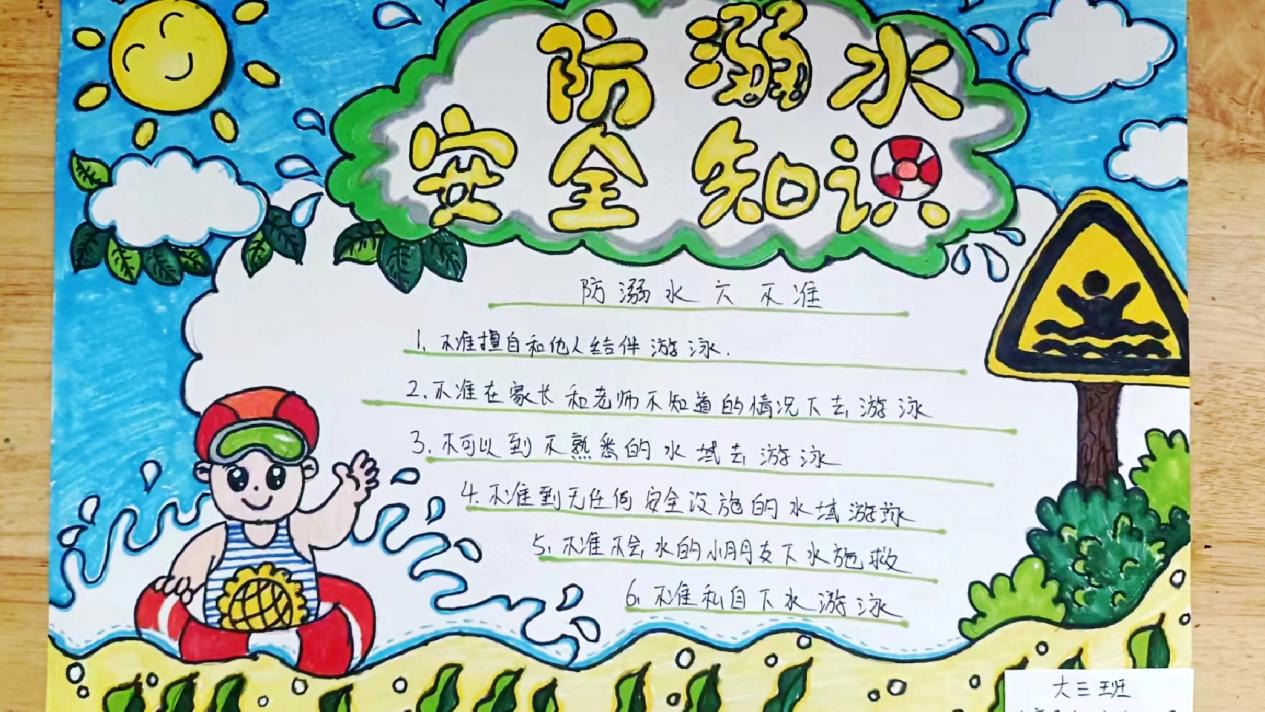 防溺水
安全知识
防溺水六不准
1. 不准擅自和他人结伴游泳.
2. 不准在家长和老师不知道的情况下去游泳
3. 不可以到不熟悉的水域去游泳
4. 不准到无任何安全设施的水域游泳
5. 不准不会水的小朋友下水施救
6. 不准私自下水游泳
大三班